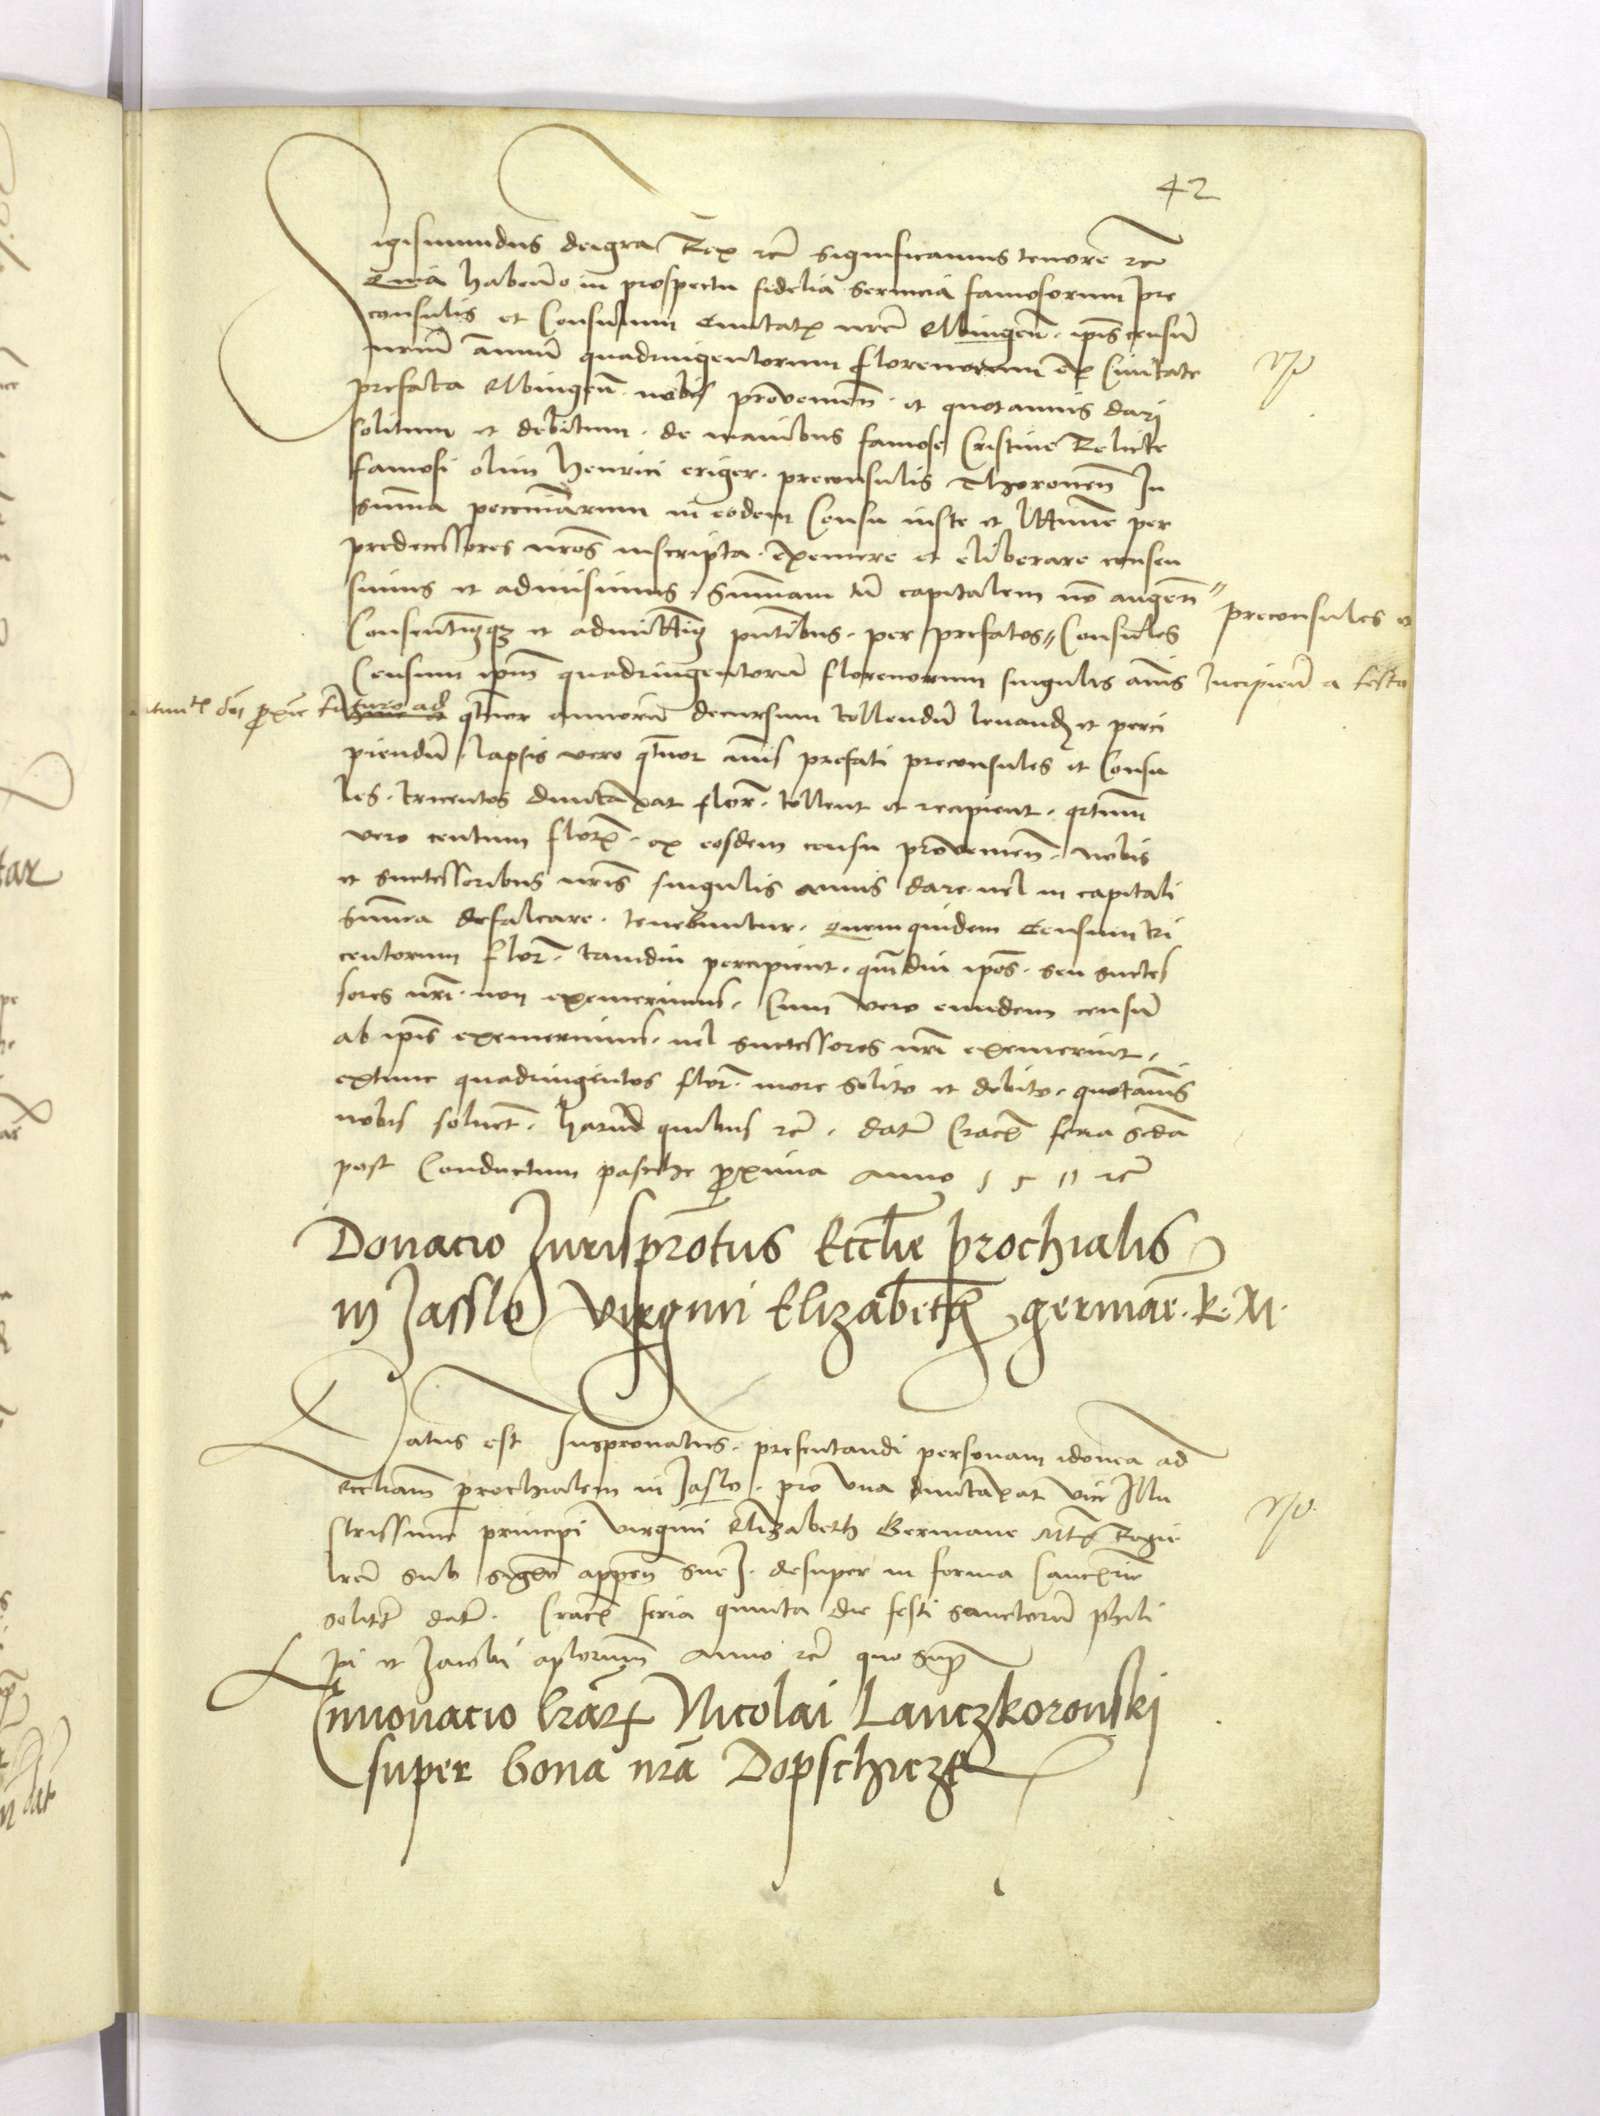 42
Sigismundus deigra Rex rc̃ significamus tenore rc̃
Quia habentes in prospectu fidelia servicia famosorum pre
consulis et Consulum Civitatis nrẽ Elbingeñ. ipĩs censum
nrũm annuũ quadringentorum florenorum ex Civitate
prefata Elbingeñ. nobis provenieñ. et quotannis dari
solitum et debitum. de manibus famose Cristine Relicte
famosi olim Henrici preconsulis Thoroneñ In
sum̃a pecuniarum in eodem Censu iuste et per
predecessores nrõs inscripta. eximere et eliberare consen
simus et admisimus. Summam tñ capitalem nõ augeñ
preconsules et
Consentimusqз et admittimus pñtibus. per prefatos Consules
Censum ipm̃ quadringentorũ florenorum singulis annis Incipieñ a festo
dñi proxĩe futuro ad qtuor annorũ decursum tollendũ levandũ et perci
piendũ. lapsis vero qtuor annis prefati preconsules et Consu
les. trecentos duntaxat floreñ. tollent et recipient.
vero centum floreñ. ex eosdem censu provenieñ. nobis
et successoribus nrĩs singulis annis dare vel in capitali
sum̃a defalcare. tenebuntur. Quemquidem Censum tri
centorum floreñ. tamdiu percipient. quamdiu ipos̃. seu succes
sores nrĩ. non exemerimus. Cum vero eundem censum
ab ipĩs exemerimus. vel successores nrĩ exemerint.
extunc quadringentos floreñ. more solito et debito. quotannis
nobis solvent. harũ quibus rc̃. datũ Crace feria scda
post Conductum pasche proxima Anno 1511 rc̃
Donacio Jurisprõtus Ecclie prochialis
in Jasslo Virgini Elizabeth germane. R. M.
Datus est Juspronatus. presentandi personam idoneã ad
eccliam̃ parochialem in Jaslo. pro una duntaxat vice Illu
strissime principi virgini Elizabeth Germane Mtis Regie
lrẽ sub sigillo appeñ sue desuper in forma Cancellarie
solite datẽ. Crace feria quinta die festi sanctorũ phili
pi et Jacobi aplorum̃ Anno rc̃ quo supra
Innovacio lrãrum Nicolai Lanczkoronski
super bona nrã Dopschicze